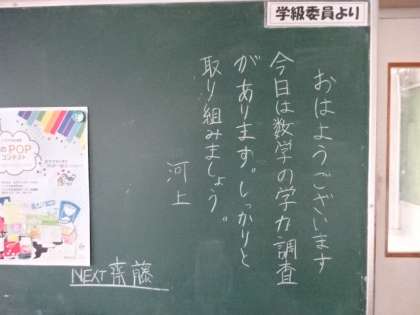 学級委員より
おはようございます
今日は数学の学力調査
があります。しっかりと
取り組みましょう。
河上
NEXT 齋藤
のPOP
コンテスト